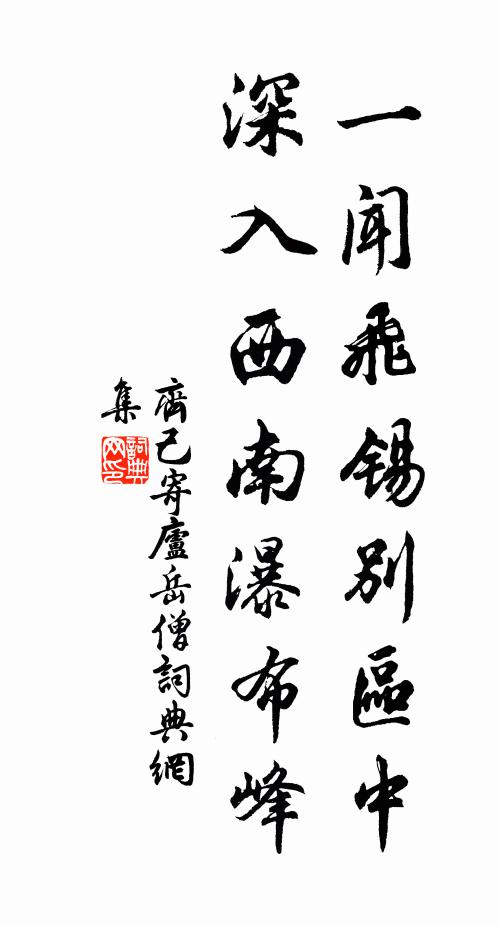 一聞飛錫別區中
深入西南瀑布峰
齊己寄廬岳僧詞典網
集
詞典網印